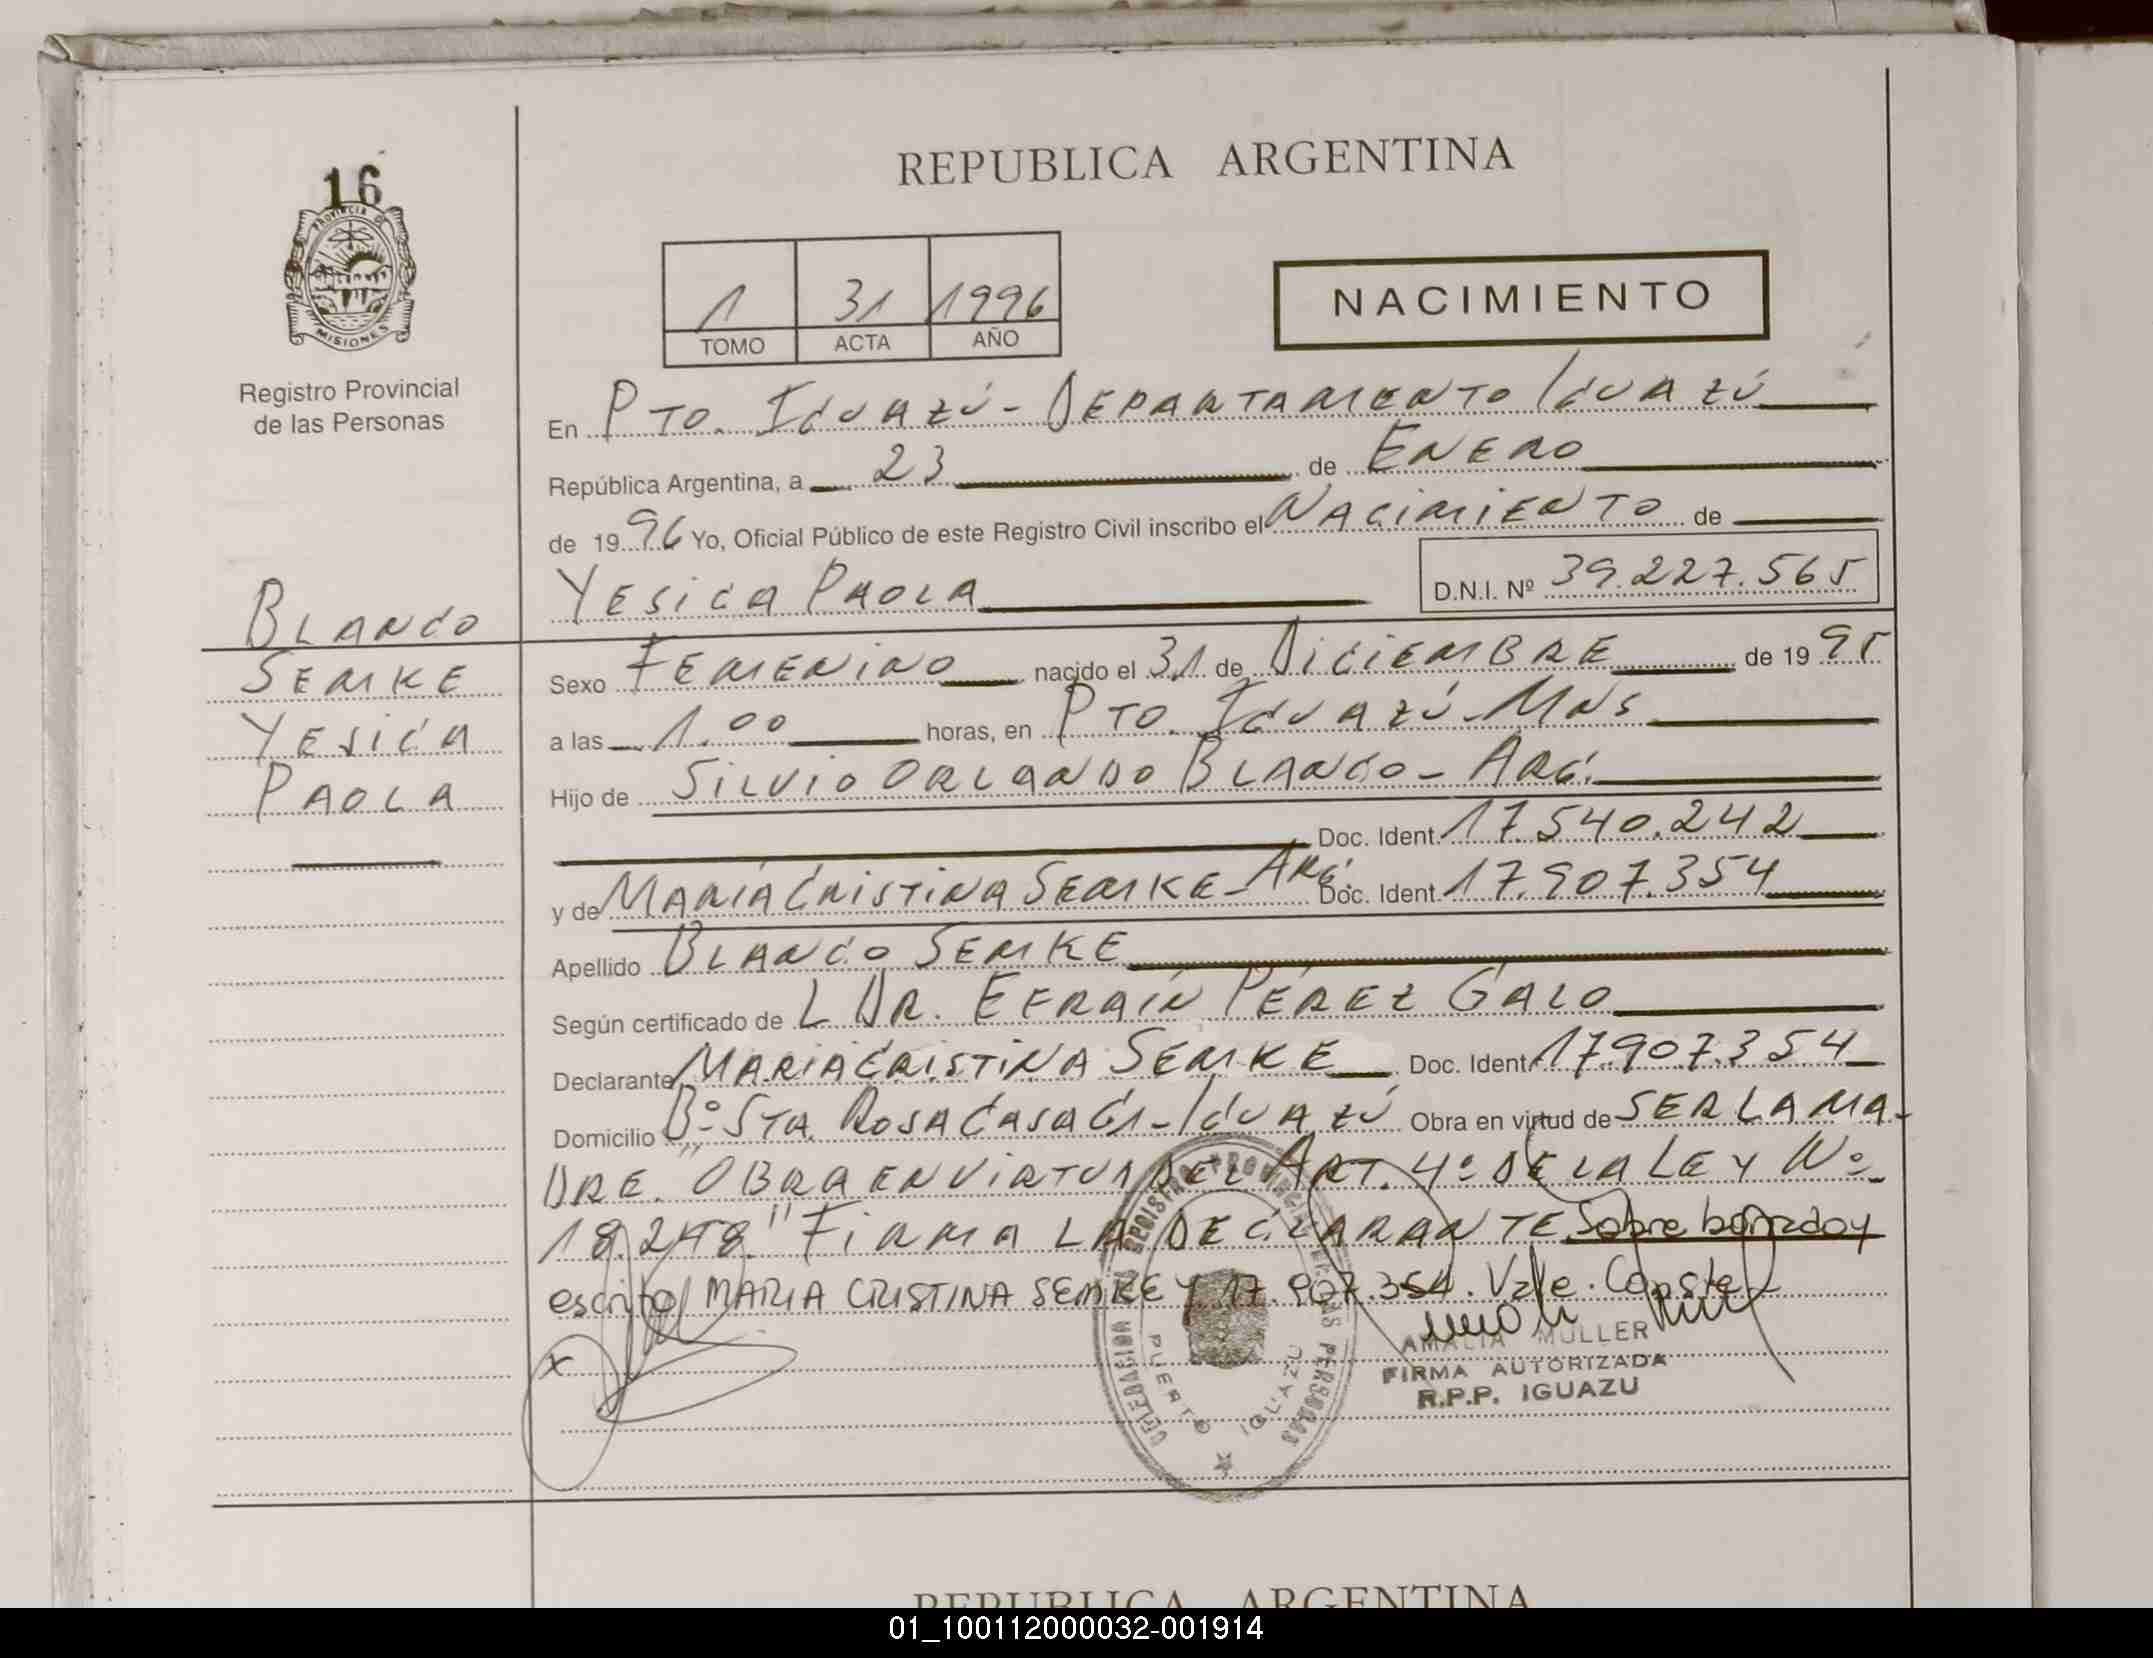 REPUBLICA ARGENTINA
16
PROVINCIA DE
MISIONES
Registro Provincial
de las Personas
1 31 1996
TOMO ACTA AÑO
NACIMIENTO
En PTO. IGUAZÚ - DEPARTAMENTO IGUAZÚ
República Argentina, a 23 de ENERO
de 1996 Yo, Oficial Público de este Registro Civil inscribo el NACIMIENTO de
YESICA PAOLA D.N.I. Nº 39.227.565
BLANCO
SEMKE
YESICA
PAOLA
Sexo FEMENINO nacido el 31 de DICIEMBRE de 1995
a las 1.00 horas, en PTO. IGUAZÚ - MNS
Hijo de SILVIO ORLANDO BLANCO - ARG.
Doc. Ident. 17.540.242
y de MARIA CRISTINA SEMKE - ARG. Doc. Ident. 17.907.354
Apellido BLANCO SEMKE
Según certificado de L DR. EFRAÍN PÉREZ GALO
Declarante MARIA CRISTINA SEMKE Doc. Ident. 17.907.354
Domicilio Bº STA. ROSA CASA G1 - IGUAZÚ Obra en virtud de SER LA MA-
DRE. "OBRA EN VIRTUD DEL ART. 4º DE LA LEY Nº
18.248." FIRMA LA DECLARANTE Sobre borrado y
escrito MARIA CRISTINA SEMKE Y 17.907.354. Vale. Conste
x
AMALIA MULLER
FIRMA AUTORIZADA
R.P.P. IGUAZU
DELEGACION REGISTRO PROVINCIAL DE LAS PERSONAS
PUERTO IGUAZU
REPUBLICA ARGENTINA
01_100112000032-001914